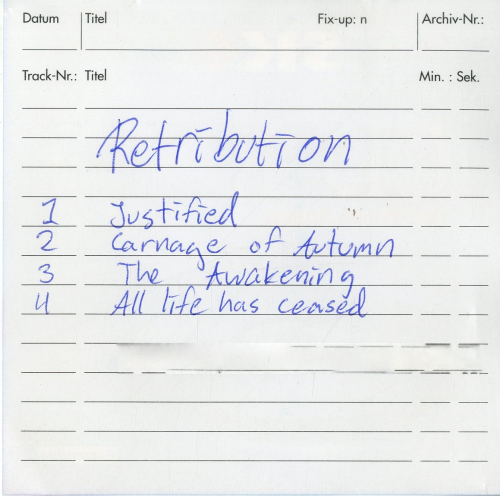 Datum Titel Fix-up: n Archiv-Nr.:
Track-Nr.: Titel Min. : Sek.
Retribution
1 Justified
2 Carnage of Autumn
3 The Awakening
4 All life has ceased